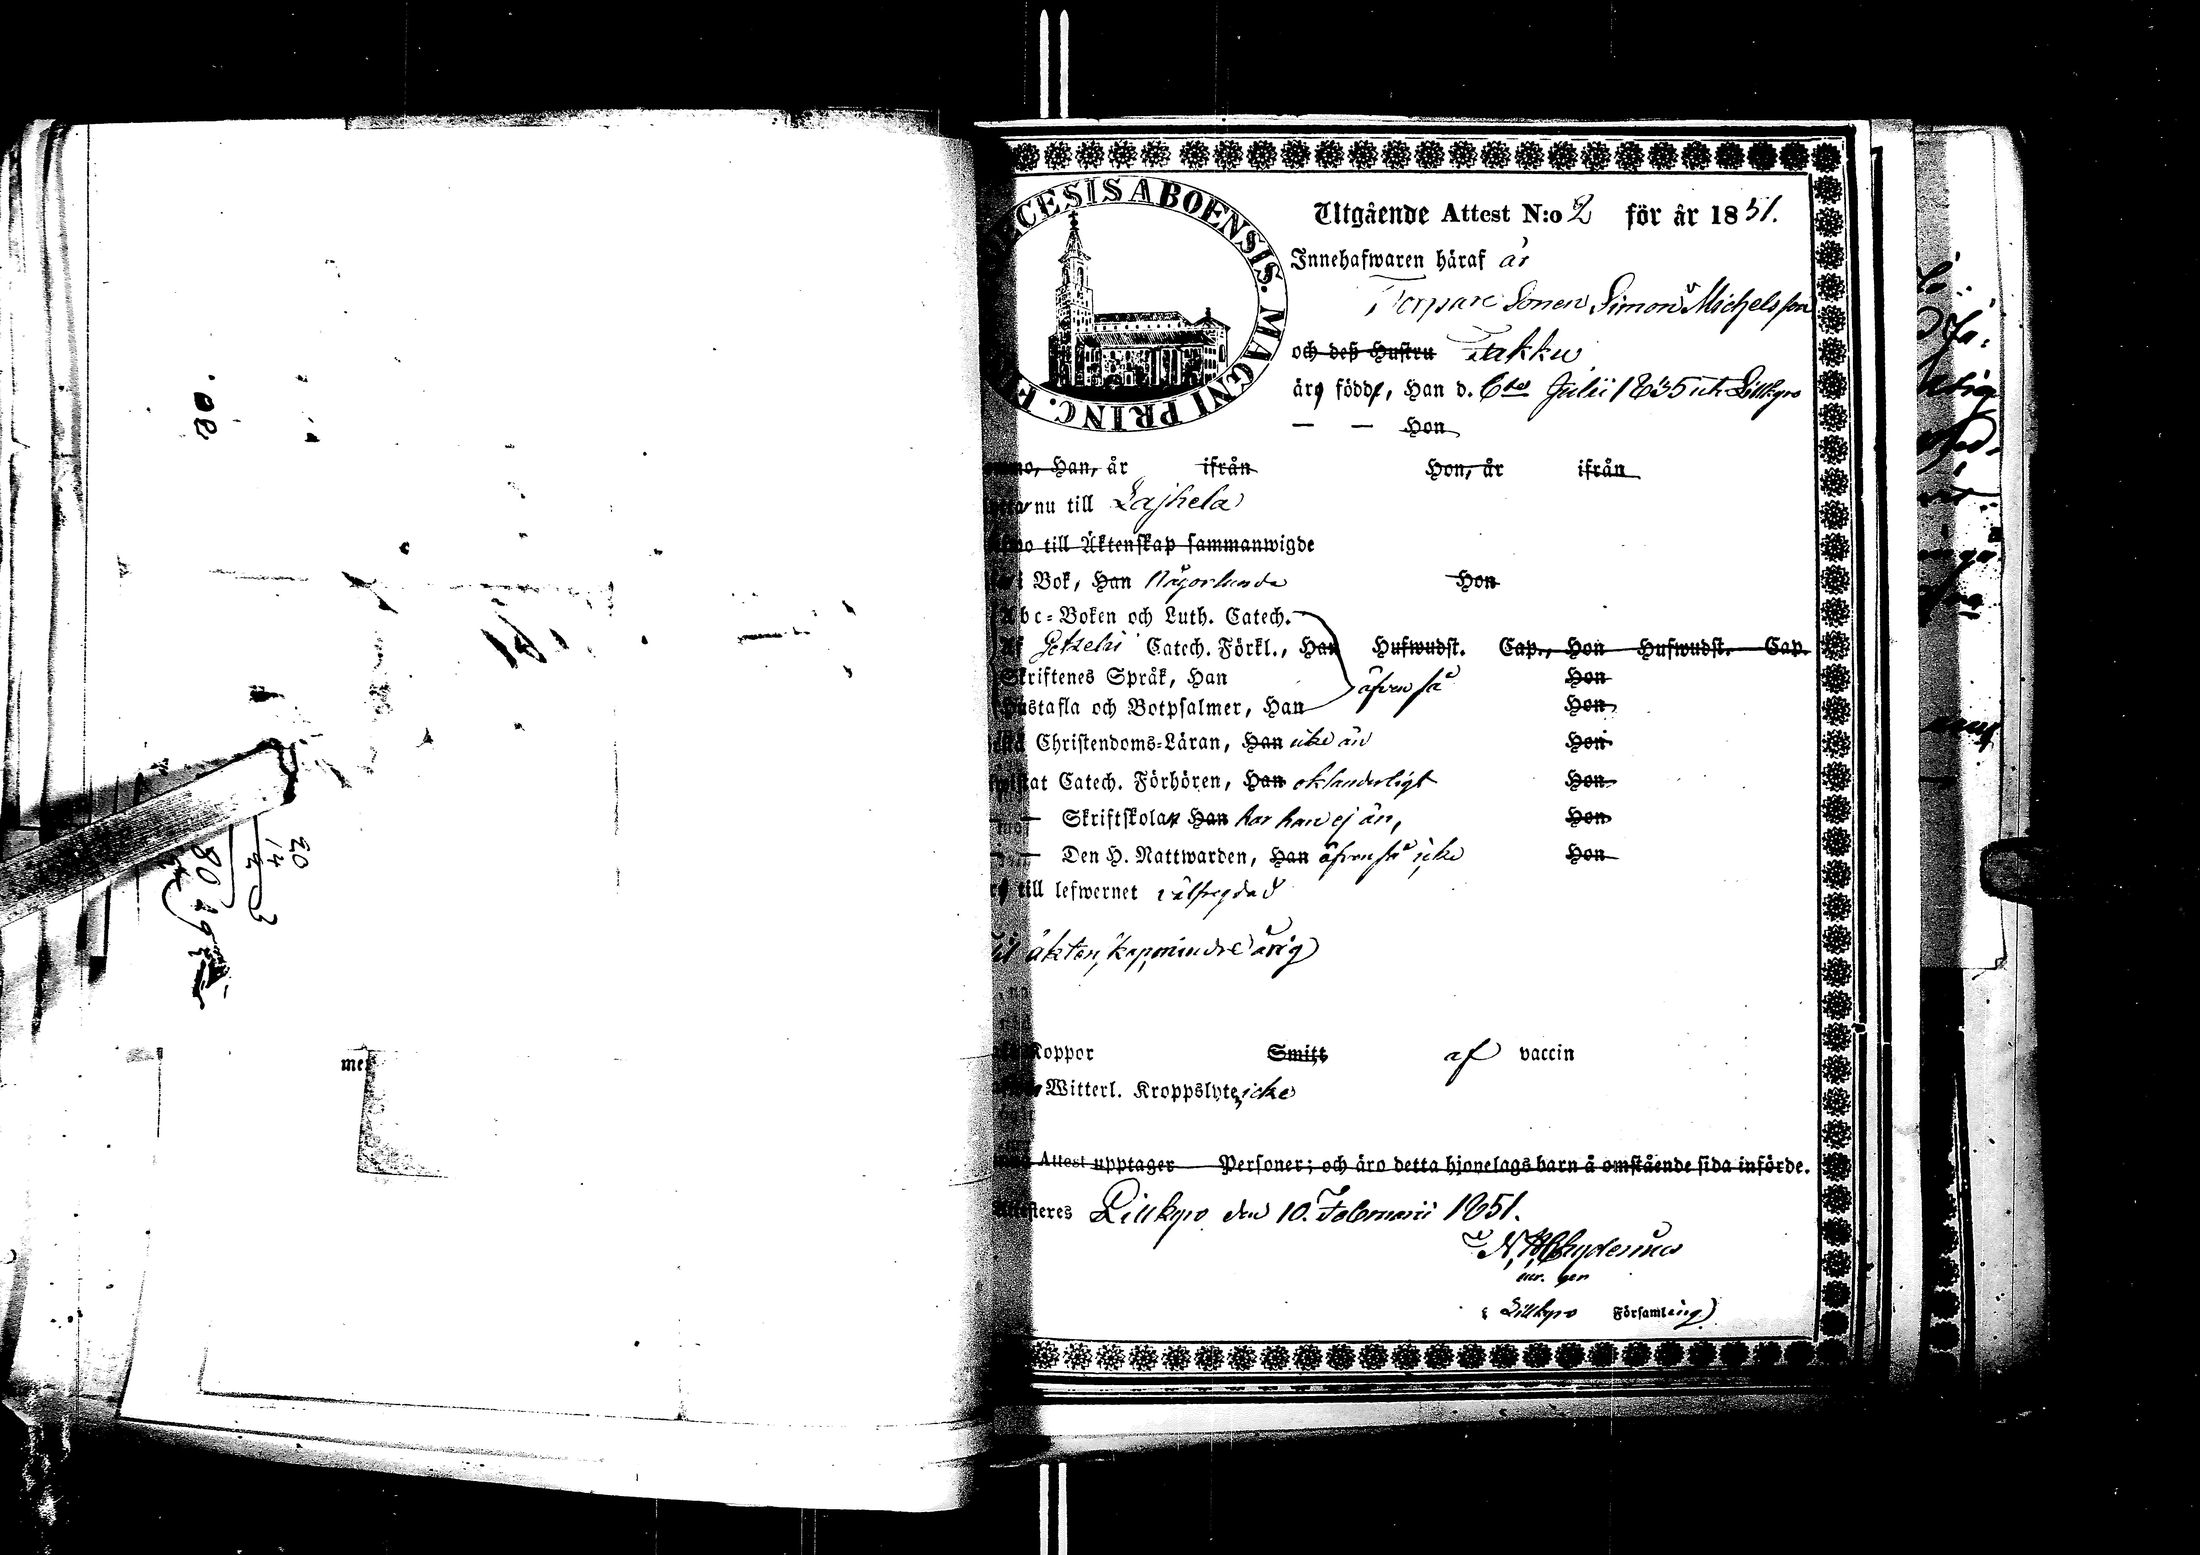 DIOECESIS ABOENSIS. MAGNI PRINC. F
Utgående Attest N:o 2 för år 1851.
Innehafwaren häraf är
Torpare Sonen Simon Michelsson
och deß Hustru Takku
äro född, Han d. 6te Julii 1835 uti Lillkyro
— — Hon
Han, år ifrån Hon, år ifrån
nu till Lajhela
till Äktenskap sammanwigde
i Bok, Han Någorlunda Hon
Abc-Boken och Luth. Catech.
Af Getzelii Catech. Förkl., Han Hufwudst. Cap., Hon Hufwudst. Cap.
Skriftenes Språk, Han äfven så Hon
Hustafla och Botpsalmer, Han Hon
Christendoms-Läran, Han icke än Hon
Catech. Förhören, Han oklanderligt Hon
— — Skriftskolan Han har han ej än, Hon
— — Den H. Nattwarden, Han äfven så icke Hon
till lefwernet välfregdad
Til äktenskap minderårig
Koppor Smitt af vaccin
Witterl. Kroppslyte, icke
Attest upptager Personer; och äro detta hjonelags barn å omstående sida införde.
Attesteres Lillkyro den 10. Februarii 1851.
Chydenius
i Lillkyro Församling
20
14
3
80
me